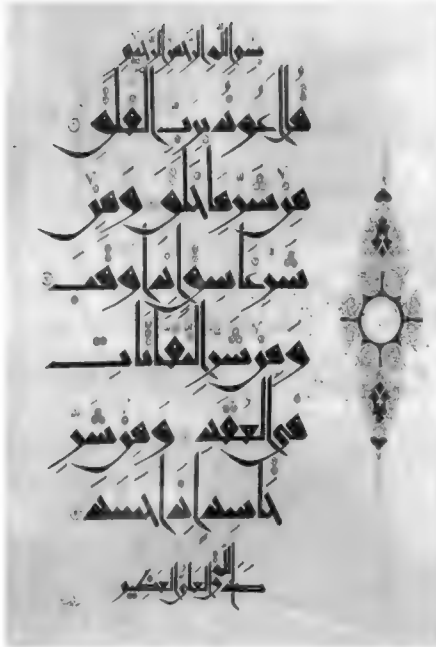 بسم الله الرحمن الرحيم
قل اعوذ برب الفلق
من شر ما خلق ومن
شر غاسق اذا وقب
ومن شر النفاثات
في العقد ومن شر
حاسد اذا حسد
صدق الله العلي العظيم